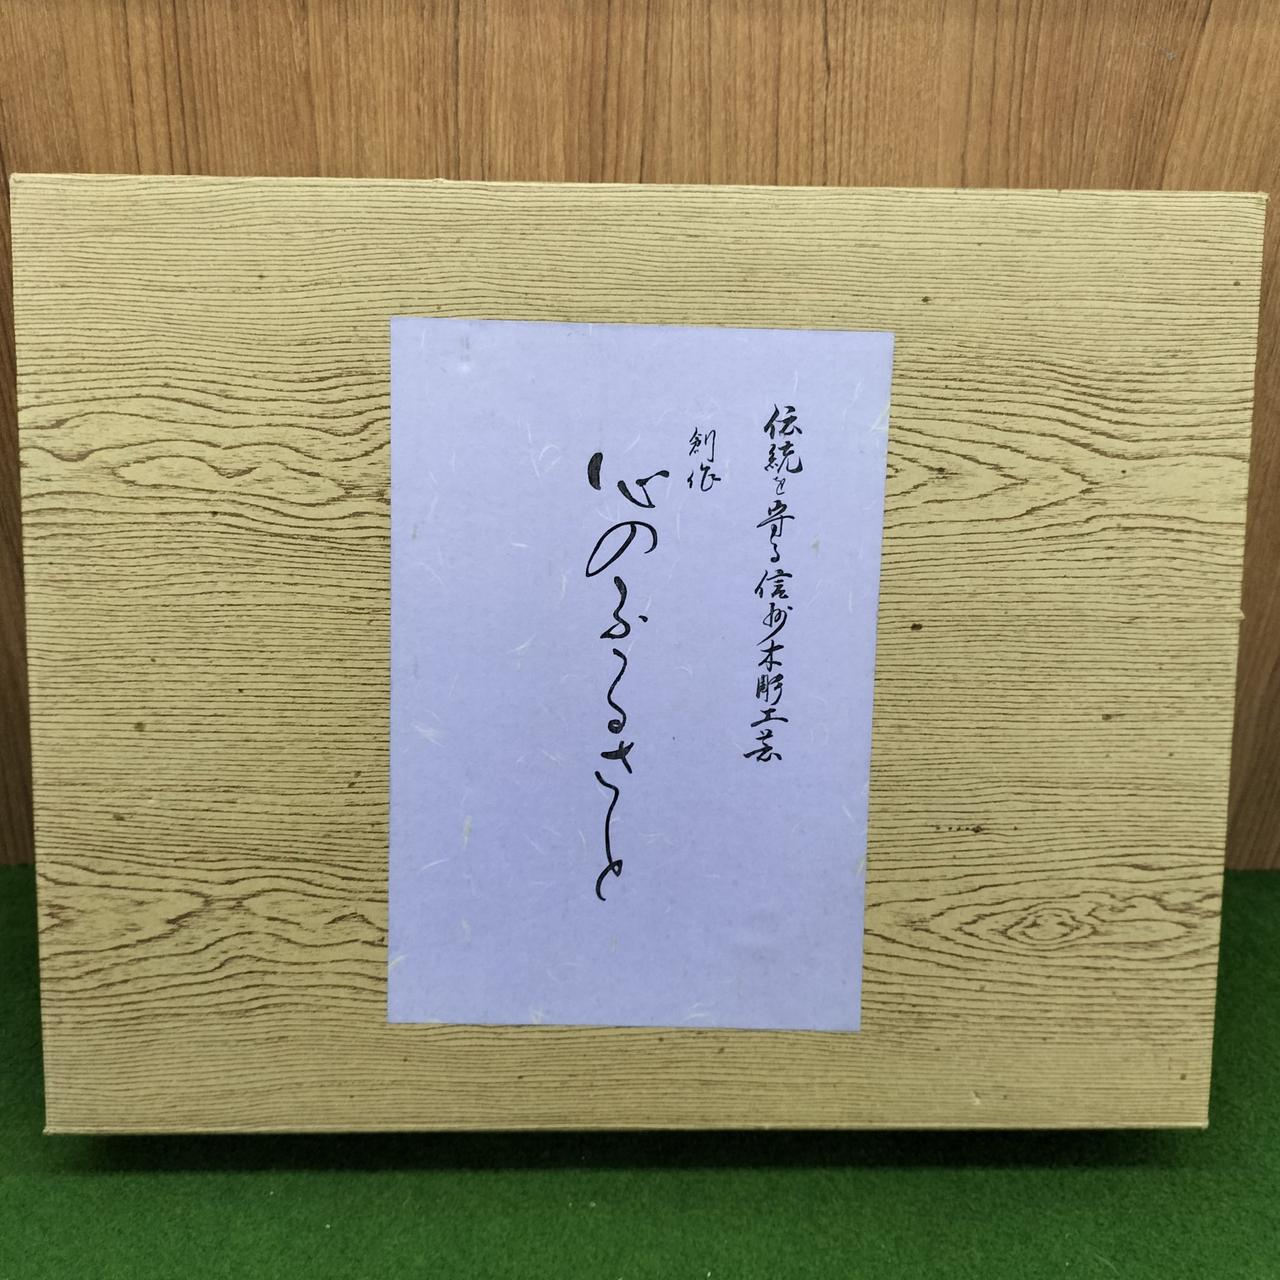 伝統を守る信州木彫工芸
創作
心のふるさと